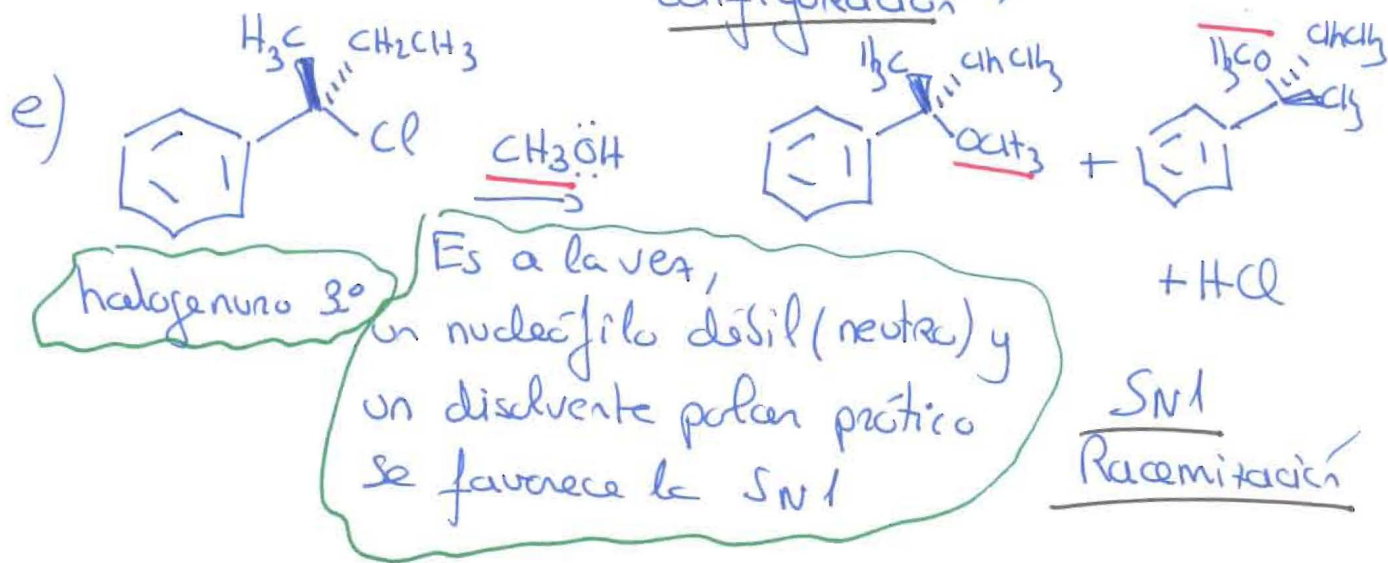 configuración
e)
H3C CH2CH3
Cl
CH3ÖH
H3C CH2CH3
OCH3
+
H3CO CH2CH3
CH3
halogenuro 3º
+ HCl
Es a la vez,
un nucleófilo débil (neutro) y
un disolvente polar prótico
se favorece la SN1
SN1
Racemización